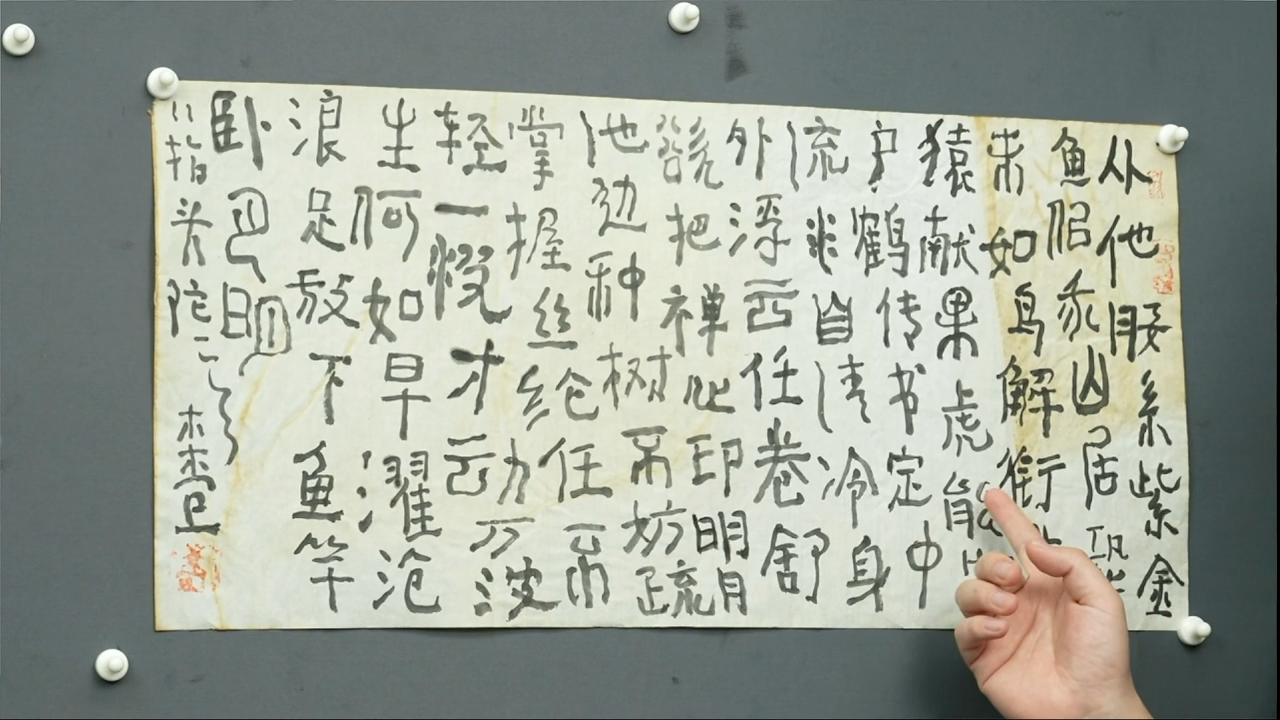 从他腰系紫金
鱼侣豕山居
未如鸟解衔
猿献果虎能
户鹤传书定中
流水自清冷身
外浮云任卷舒
把禅心印明月
池边种树不妨疏
掌握丝纶任
轻一才云动万波
生何如早濯沧
浪足放下鱼竿
卧明月
八指头陀